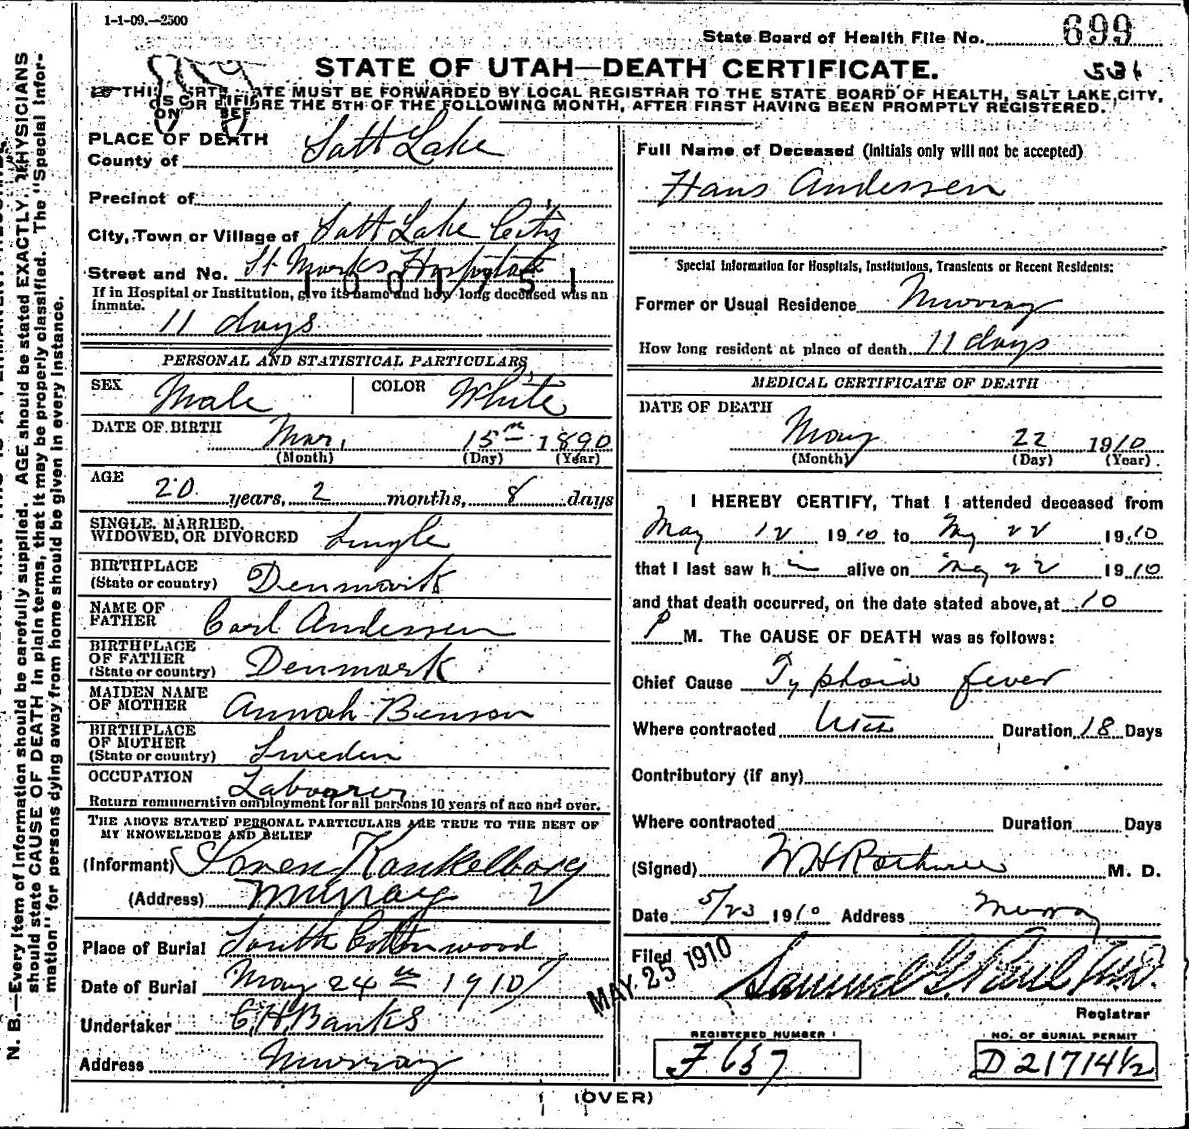 1-1-09.—2500
State Board of Health File No. 699
STATE OF UTAH—DEATH CERTIFICATE.
531
THIS CERTIFICATE MUST BE FORWARDED BY LOCAL REGISTRAR TO THE STATE BOARD OF HEALTH, SALT LAKE CITY,
ON OR BEFORE THE 5TH OF THE FOLLOWING MONTH, AFTER FIRST HAVING BEEN PROMPTLY REGISTERED.
PLACE OF DEATH
County of Salt Lake
Precinct of
City, Town or Village of Salt Lake City
Street and No. St Marks Hospital
1001751
If in Hospital or Institution, give its name and how long deceased was an
inmate.
11 days
PERSONAL AND STATISTICAL PARTICULARS
SEX Male COLOR White
DATE OF BIRTH Mar, 15th 1890
(Month) (Day) (Year)
AGE 20 years, 2 months, 8 days
SINGLE, MARRIED,
WIDOWED, OR DIVORCED Single
BIRTHPLACE
(State or country) Denmark
NAME OF
FATHER Carl Andersen
BIRTHPLACE
OF FATHER
(State or country) Denmark
MAIDEN NAME
OF MOTHER Annah Benson
BIRTHPLACE
OF MOTHER
(State or country) Sweden
OCCUPATION Laboorer
Return remunerative employment for all persons 10 years of age and over.
THE ABOVE STATED PERSONAL PARTICULARS ARE TRUE TO THE BEST OF
MY KNOWLEDGE AND BELIEF
(Informant) Soren Kankelborg
(Address) Murray
Place of Burial South Cottonwood
Date of Burial May 24th 1910
Undertaker C H Banks
Address Murray
Full Name of Deceased (Initials only will not be accepted)
Hans Andersen
Special Information for Hospitals, Institutions, Transients or Recent Residents:
Former or Usual Residence Murray
How long resident at place of death 11 days
MEDICAL CERTIFICATE OF DEATH
DATE OF DEATH
May 22 1910
(Month) (Day) (Year)
I HEREBY CERTIFY, That I attended deceased from
May 12 1910 to May 22 1910
that I last saw h alive on May 22 1910
and that death occurred, on the date stated above, at 10
P M. The CAUSE OF DEATH was as follows:
Chief Cause Typhoid fever
Where contracted Utah Duration 18 Days
Contributory (if any)
Where contracted Duration Days
(Signed) W H Rothwell M. D.
Date 5/23 1910 Address Murray
Filed MAY 25 1910 Samuel G. Paul M.D.
Registrar
REGISTERED NUMBER
F 637
NO. OF BURIAL PERMIT
D 21714½
(OVER)
N. B.—Every Item of Information should be carefully supplied. AGE should be stated EXACTLY. PHYSICIANS
should state CAUSE OF DEATH in plain terms, that it may be properly classified. The "Special Infor-
mation" for persons dying away from home should be given in every instance.